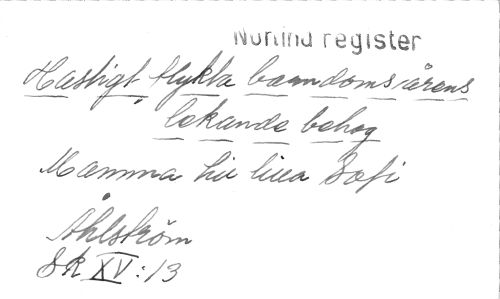 Norlind register
Hastigt flykta barndomsårens
lekande behag
Mamma till lilla Sofi
Åhlström
SK XV:13